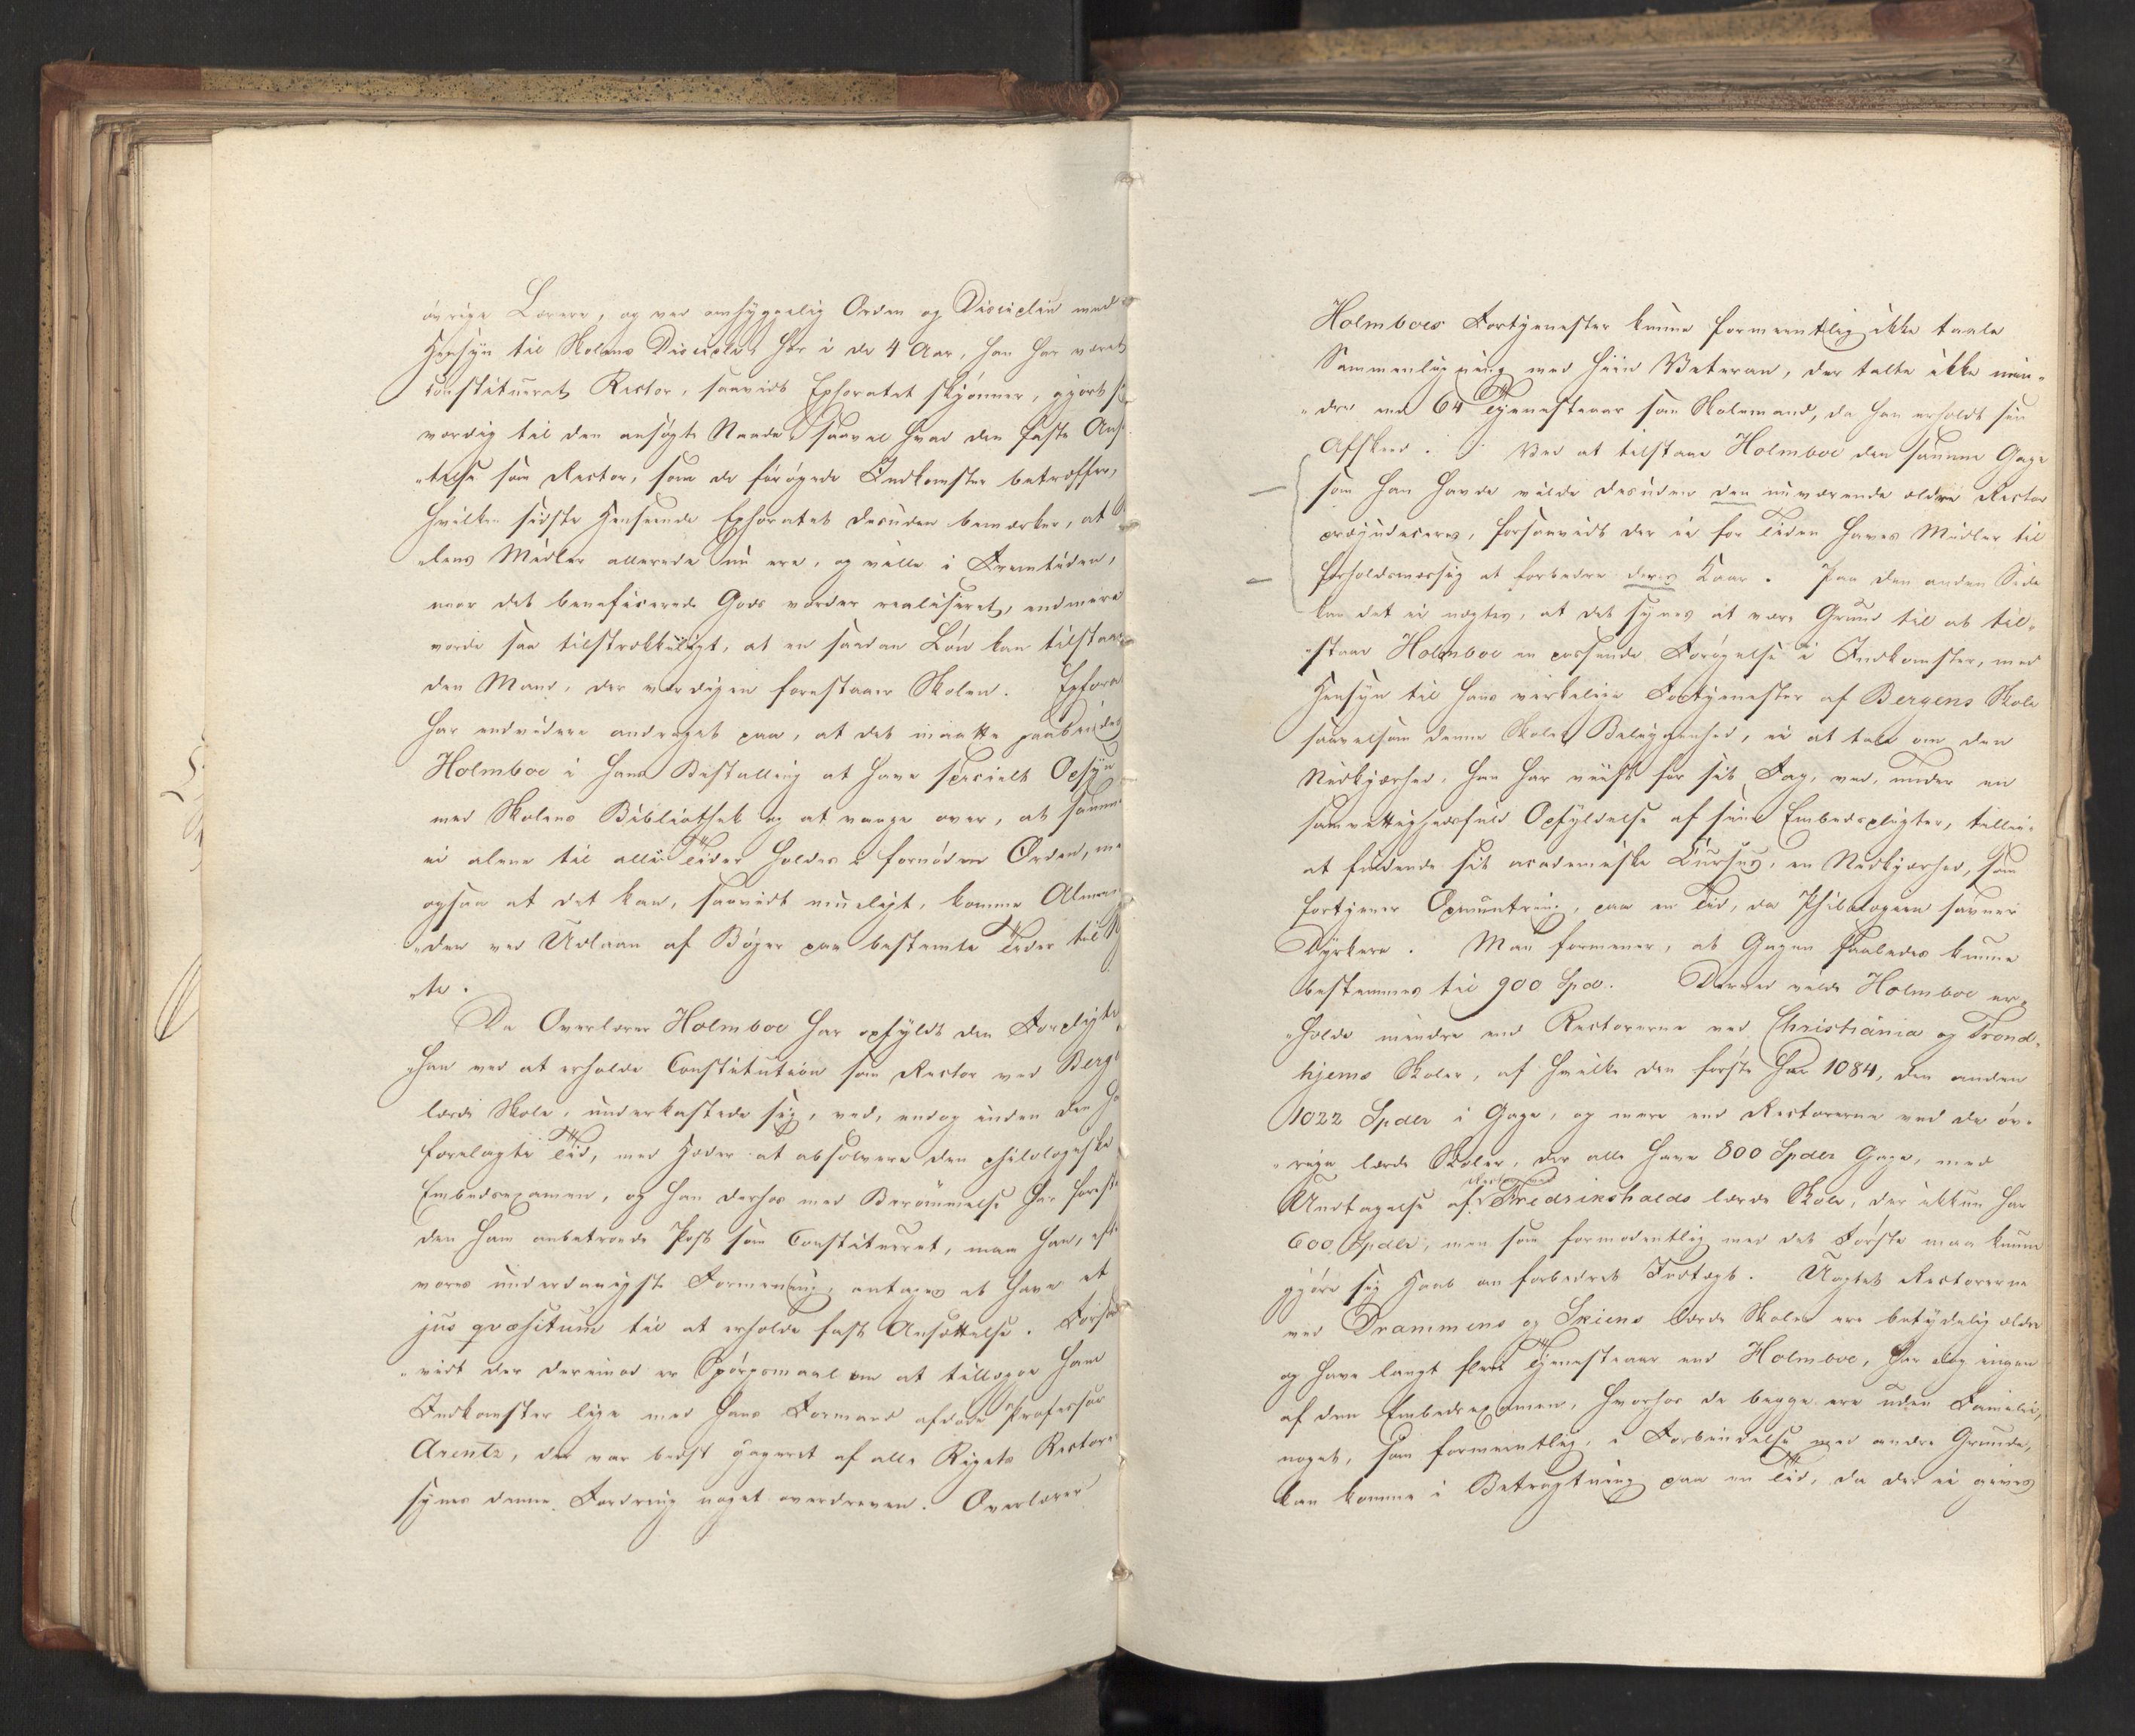 øvrige Lærere, og ved omhyggelig Orden og Disciplin med
Hensyn til Skolens Disciple har i de 4 Aar, han har været
constitueret Rector, saavidt Ephoratet skjønner, gjort si
værdig til den ansøgte Naade, saavel hvad den faste Ans
„telse som Rector, som de forøgede Indkomster betræffer,
hvilken sidste Henseende Ephoratet desuden bemærker, at
„lens Midler allerede nu ere, og ville i Fremtiden,
naar det beneficerede Gods vorder realiseret, endmere
vorde saa tilstrækkeligt, at en saadan Løn kan tilstaae
den Mand, der værdigen forestaaer Skolen. Ephora
har endvidere andraget paa, at det maatte paabydes
Holmboe i hans Bestalling at have specielt Opsyn
med Skolens Bibliothek og at vaage over, at samme
ei alene til alle Tider holdes i fornøden Orden, me
ogsaa at det kan, saavidt mueligt, komme Almee
„den ved Udlaan af Bøger paa bestemte Tider til N
„te.
Da Overlærer Holmboe har opfyldt den Forpligte
han ved at erholde Constitution som Rector ved Berge
lærde Skole, underkastede sig, ved, endog inden den ha
forelagte Tid, med Hæder at absolvere den philologiske
Embedsexamen, og han derhos med Berømmelse har forest
den ham anbetroede Post som Constitueret, maa han, eft
vores underdanigste Formening, antages at have et
jus qvæsitum til at erholde fast Ansættelse. Forsaa
„vidt der derimod er Spørgsmaal om at tillægge ham
Indkomster lige med hans Formand afdøde Professor
Arentz, der var bedst gageret af alle Rigets Rectore
synes denne Fordring noget overdreven. Overlærer
Holmboes Fortjenester kunne formeentlig ikke taale
Sammenligning med hiin Veteran, der talte ikke min„
„dre end 64 Tjenesteaar som Skolemand, da han erholdt sin
Afskeed. Ved at tilstaae Holmboe den samme Gage
som han havde vilde desuden den nuværende ældre Rector
præjudiceres, forsaavidt der ei for Tiden haves Midler til
forholdsmæssig at forbedre deres Kaar. Paa den anden Side
kan det ei nægtes, at det synes at være Grund til at til„
„staae Holmboe en passende Forøgelse i Indkomster, med
Hensyn til hans virkelige Fortjenester af Bergens Skole
saavelsom denne Skoles Beleggenhed, ei at tale om den
Nidkjærhed, han har viist for sit Fag, ved, under en
samvittighedsfuld Opfyldelse af sine Embedspligter, tillige
at fuldende sit academiske Cursus, en Nidkjærhed, som
fortjener Opmuntring, paa en Tid, da Philologien savner
Dyrkere. Man formener, at Gagen saaledes kunne
bestemmes til 900 Spd. Derved vilde Holmboe er„
„holde mindre end Rectorerne ved Christiania og Trond„
hjems Skoler, af hvilke den første har 1084, den anden
1022 Spdlr i Gage, og mere end Rectorerne ved de øv„
„rige lærde Skoler, der alle have 800 Spdlr Gage, med
Rectoren ved
Undtagelse af Fredrikshalds lærde Skole, der ikkun har
600 Spdlr, men som formodentlig med det Første maa kunne
gjøre sig Haab om forbedret Indtægt. Uagtet Rectorerne
ved Drammens og Skiens lærde Skoler ere betydelig ældre
og have langt flere Tjenesteaar end Holmboe, har dog ingen
af dem Embedsexamen, hvorhos de begge ere uden Familie,
noget, som formeentlig, i Forbindelse med andre Grunde,
kan komme i Betragtning paa en Tid, da der ei gives